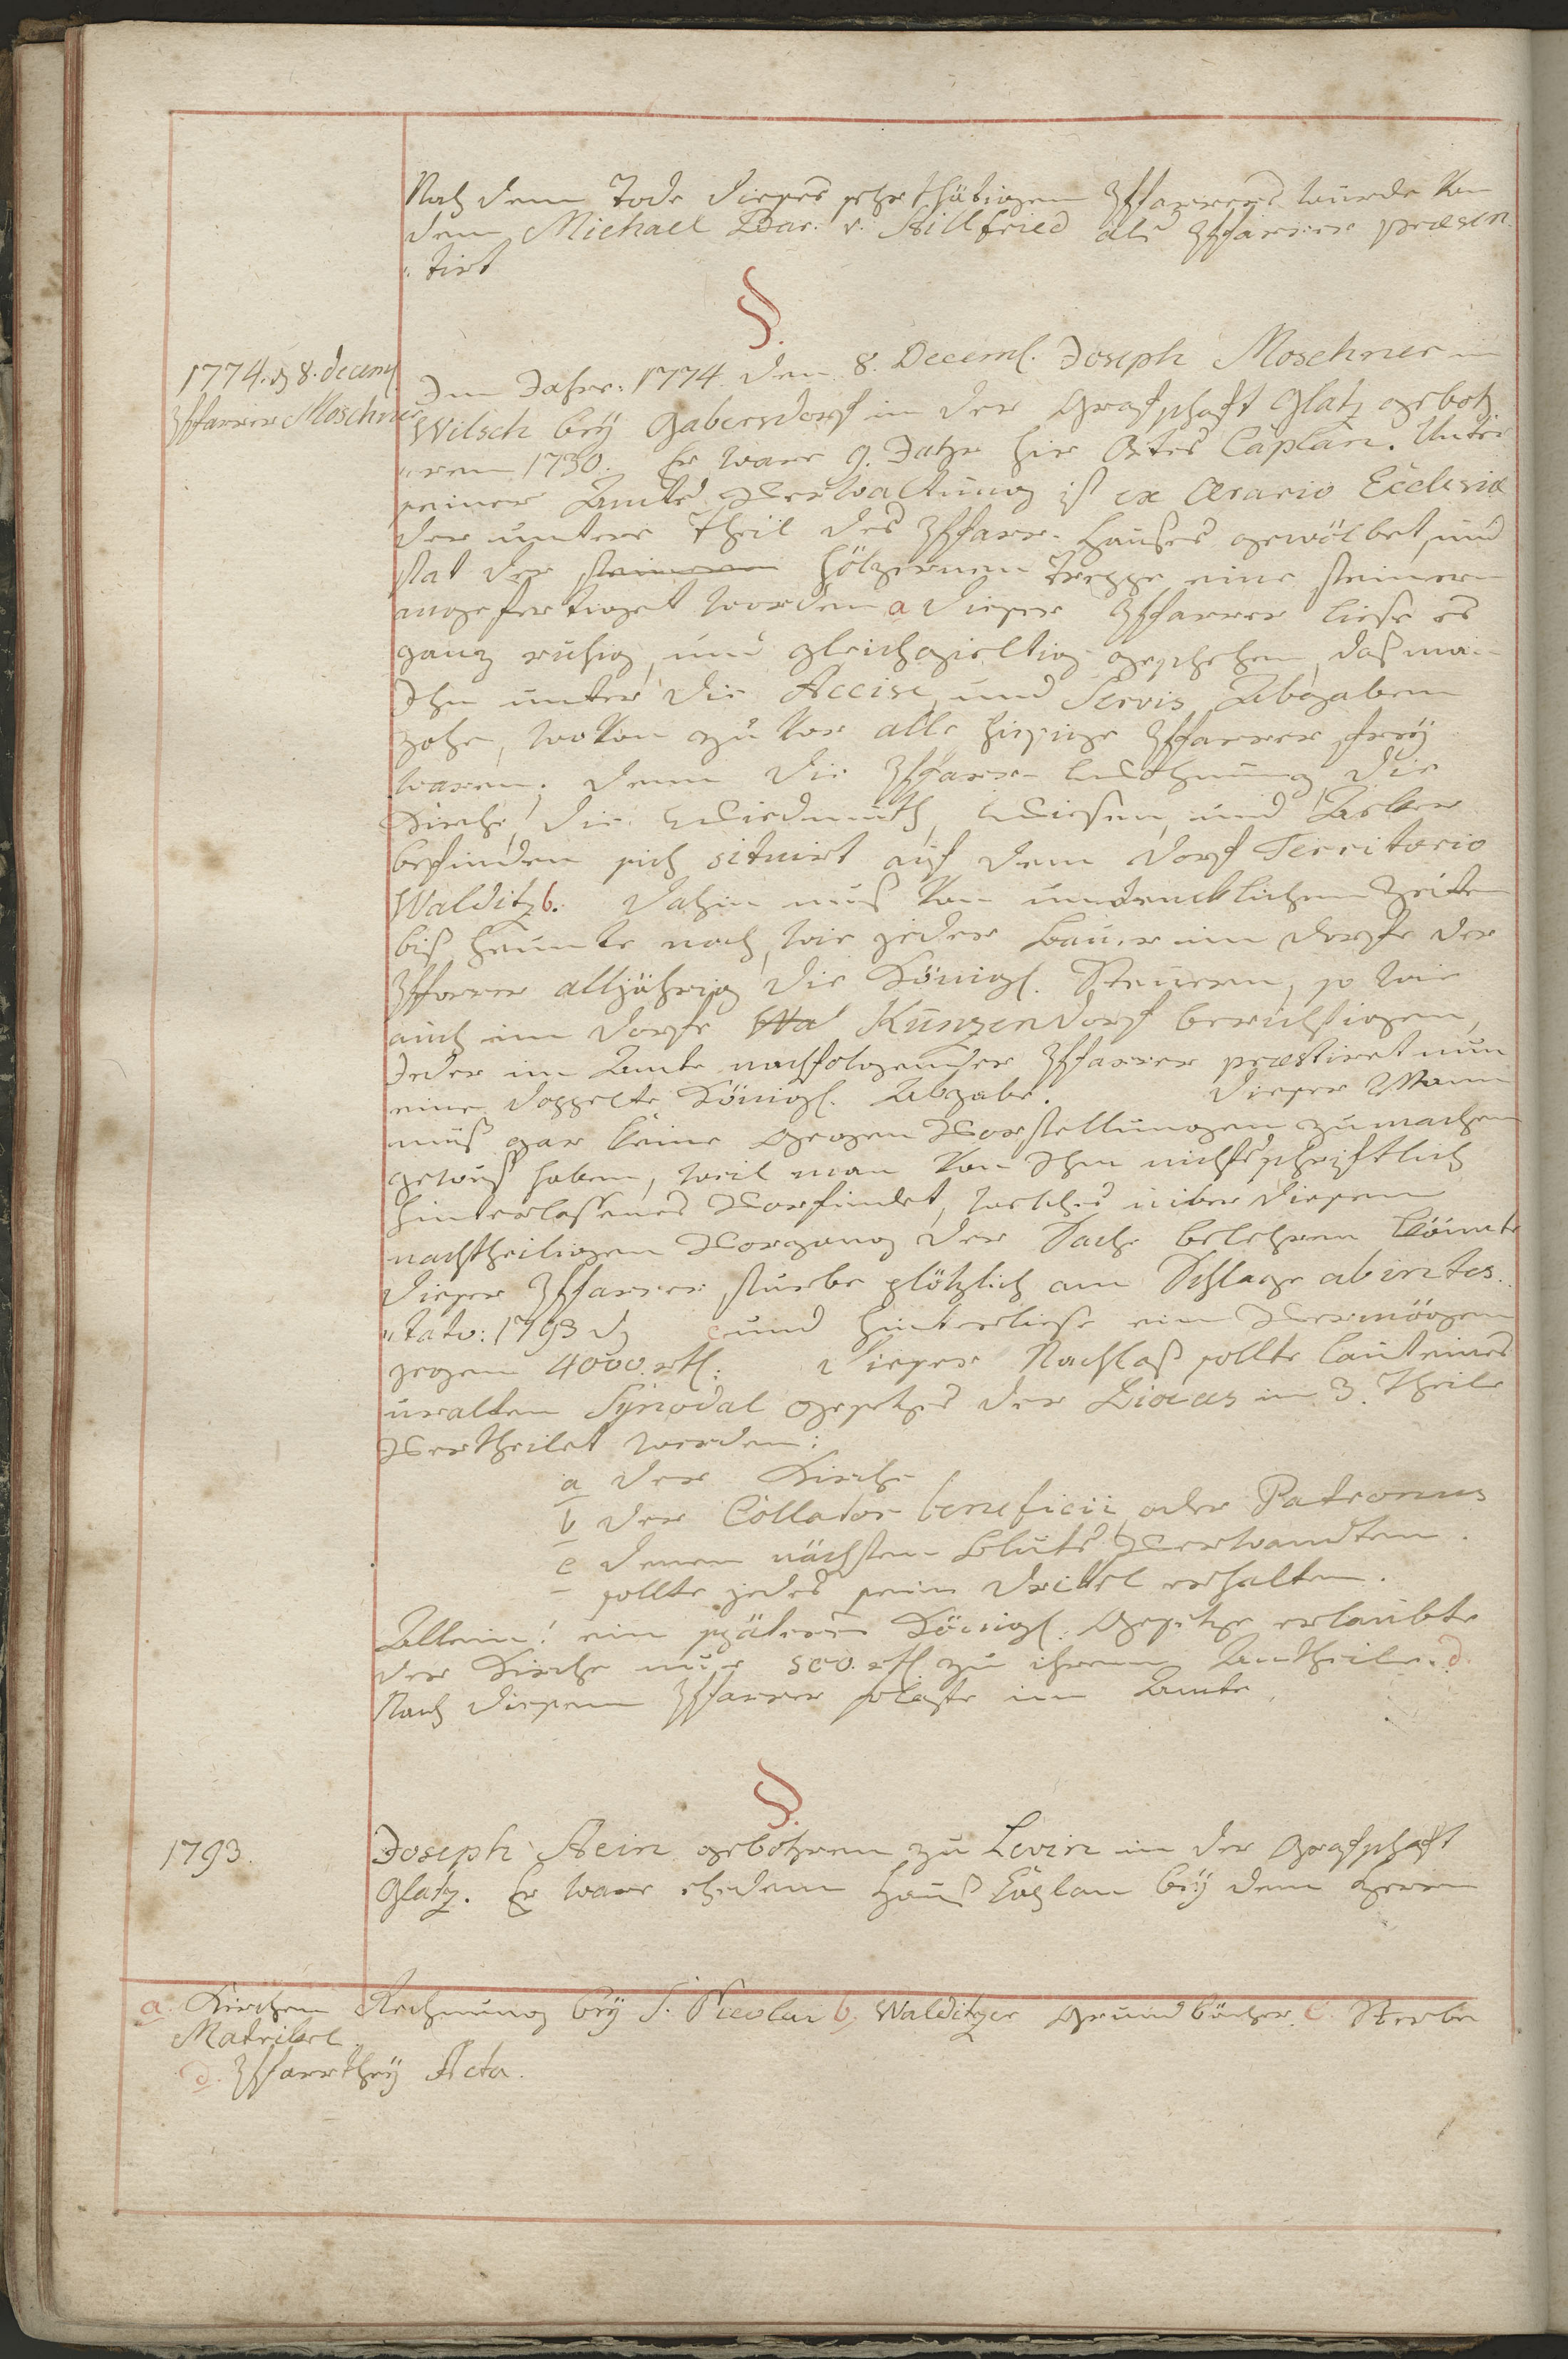 Nach dem Tode dieses sehr thätigen Pfarrers wurde von
dem Michael Bar. v. Stillfried als Pfarrer præsen
„tirt
§.
1774. d 8. Decem
Pfarrer Moschner
Im Jahre: 1774 den 8. Decemb. Joseph Moschner in
Wilsch beÿ Gabersdorf in der Grafschaft Glatz geboh
„ren 1730. Er ware 9. Jahr hier Ortes Caplan. Unter
seiner Amts Verwaltung ist ex Ærario Ecclesiæ
der untere Theil des Pfarr-Hauses gewölbet, und
stat der steinernen hölzernen Treppe eine steinern
angefertiget worden a dieser Pfarrer liese es
ganz ruhig, und gleichgieltig geschehen, daß man
Ihn unter die Accise, und Servis Abgaben
zohe, wovon zu vor alle hiesige Pfarrer freÿ
waren; denn die Pfarr-Wohnung, die
Kirche, die Wiedmuth, Wiesen, und Aecker
befinden sich situirt auf dem Dorf Territorio
Walditz b. dahin muß von undencklichen Zeiten
biß heunte noch, wie jeder Bauer im Dorfe der
Pfarrer alljährig die Königl. Steuern, so wie
auch im Dorfe Wal Kunzendorf berichtigen,
Jeder im Amte nachfolgender Pfarrer præstiret nun
eine doppelte Königl. Abgabe. Dieser Mann
muß gar keine Gegen Vorstellungen zu machen
gewust haben, weil man von Ihm nichts schriftlich
hinterlassenes Vorfindet, welches über diesen
nachtheiligen Vorgang der Sache belehren könnte
Dieser Pfarrer sturbe plötzlich am Schlage ab intes
„tato: 1793 d c und hinterliese ein Vermögen
gegen 4000 rtl: Dieser Nachlaß sollte laut eines
uralten Synodal Gesetzes der Diœces in 3. Theile
Vertheilet werden:
a der Kirche
b der Collator beneficii, oder Patronus
c denen nächsten Bluts Verwandten.
sollte jedes sein Drittel erhalten.
Allein! ein späteres Königl: Gesetze erlaubte
der Kirche nur 500. rtl zu ihrem Antheile. d.
Nach diesem Pfarrer folgte im Amte
§.
1793.
Joseph Stein gebohren zu Levin in der Grafschaft
Glatz. Er ware ehedem Hauß Caplan beÿ dem Herrn
a. Kirchen Rechnung beÿ S. Nicolai b. Walditzer Grund bücher. c. Sterbe
Matrikel
d. Pfarrtheÿ Acta.